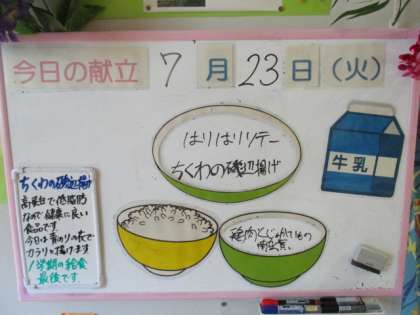 今日の献立 7月23日(火)
はりはりソテー
ちくわの磯辺揚げ
牛乳
鶏肉とじゃがいもの
ちくわの磯辺揚げ
高蛋白で低脂肪
なので健康に良い
食品です。
今日は青のりの衣で
カラリと揚げます
1学期の給食
最後です。